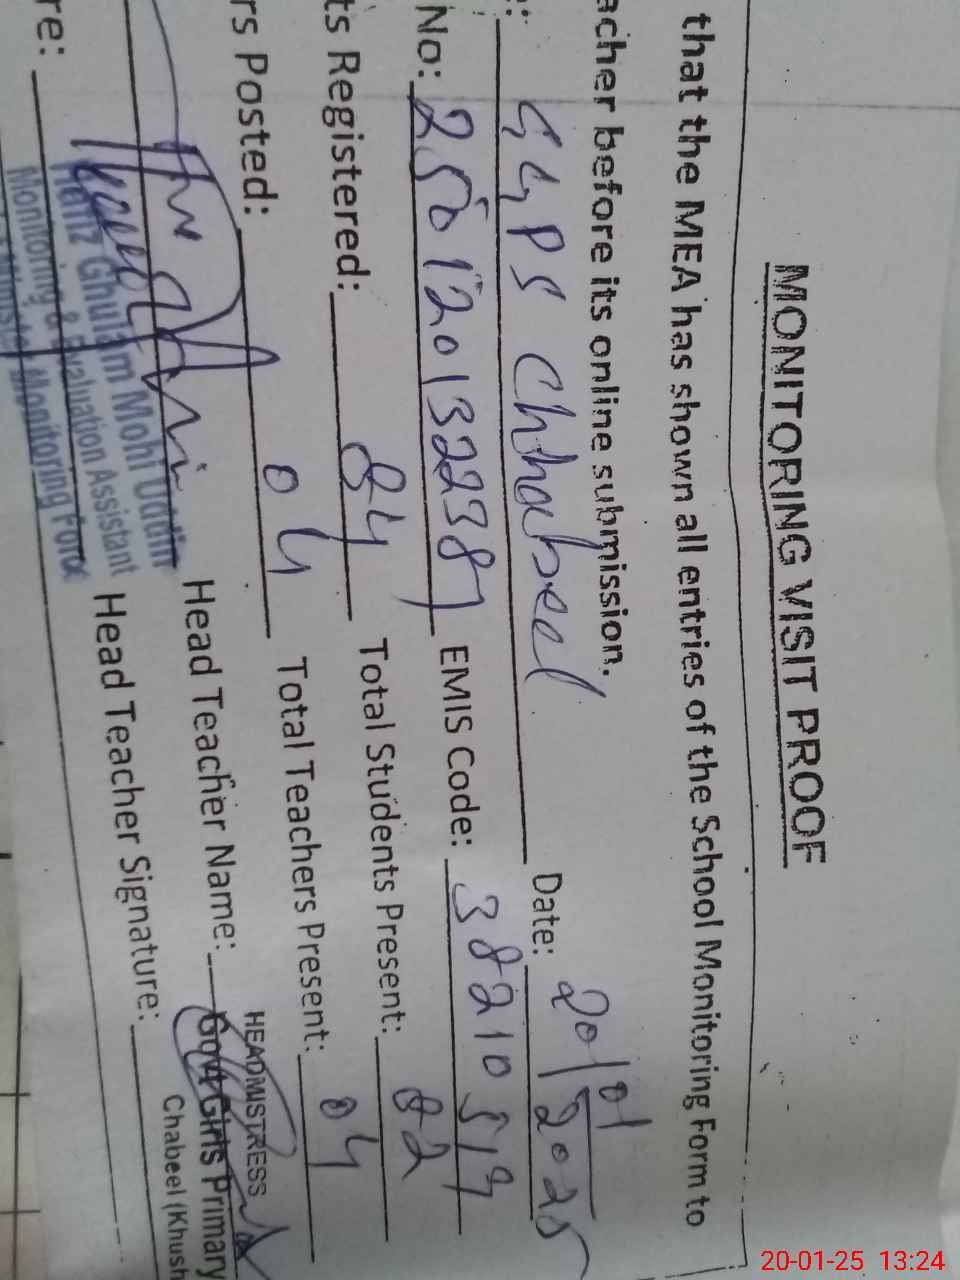 MONITORING VISIT PROOF
that the MEA has shown all entries of the School Monitoring Form to
acher before its online submission.
e: GGPS Chhabeel Date: 20/01/2025
No: 2501201322389 EMIS Code: 38210519
ts Registered: 84 Total Students Present: 82
rs Posted: 04 Total Teachers Present: 04
Head Teacher Name:
HEADMISTRESS
Govt Girls Primary
Chabeel (Khush
re:
Head Teacher Signature:
Hafiz Ghulam Mohi Uddin
Monitoring & Evaluation Assistant
Monitoring Force
20-01-25 13:24